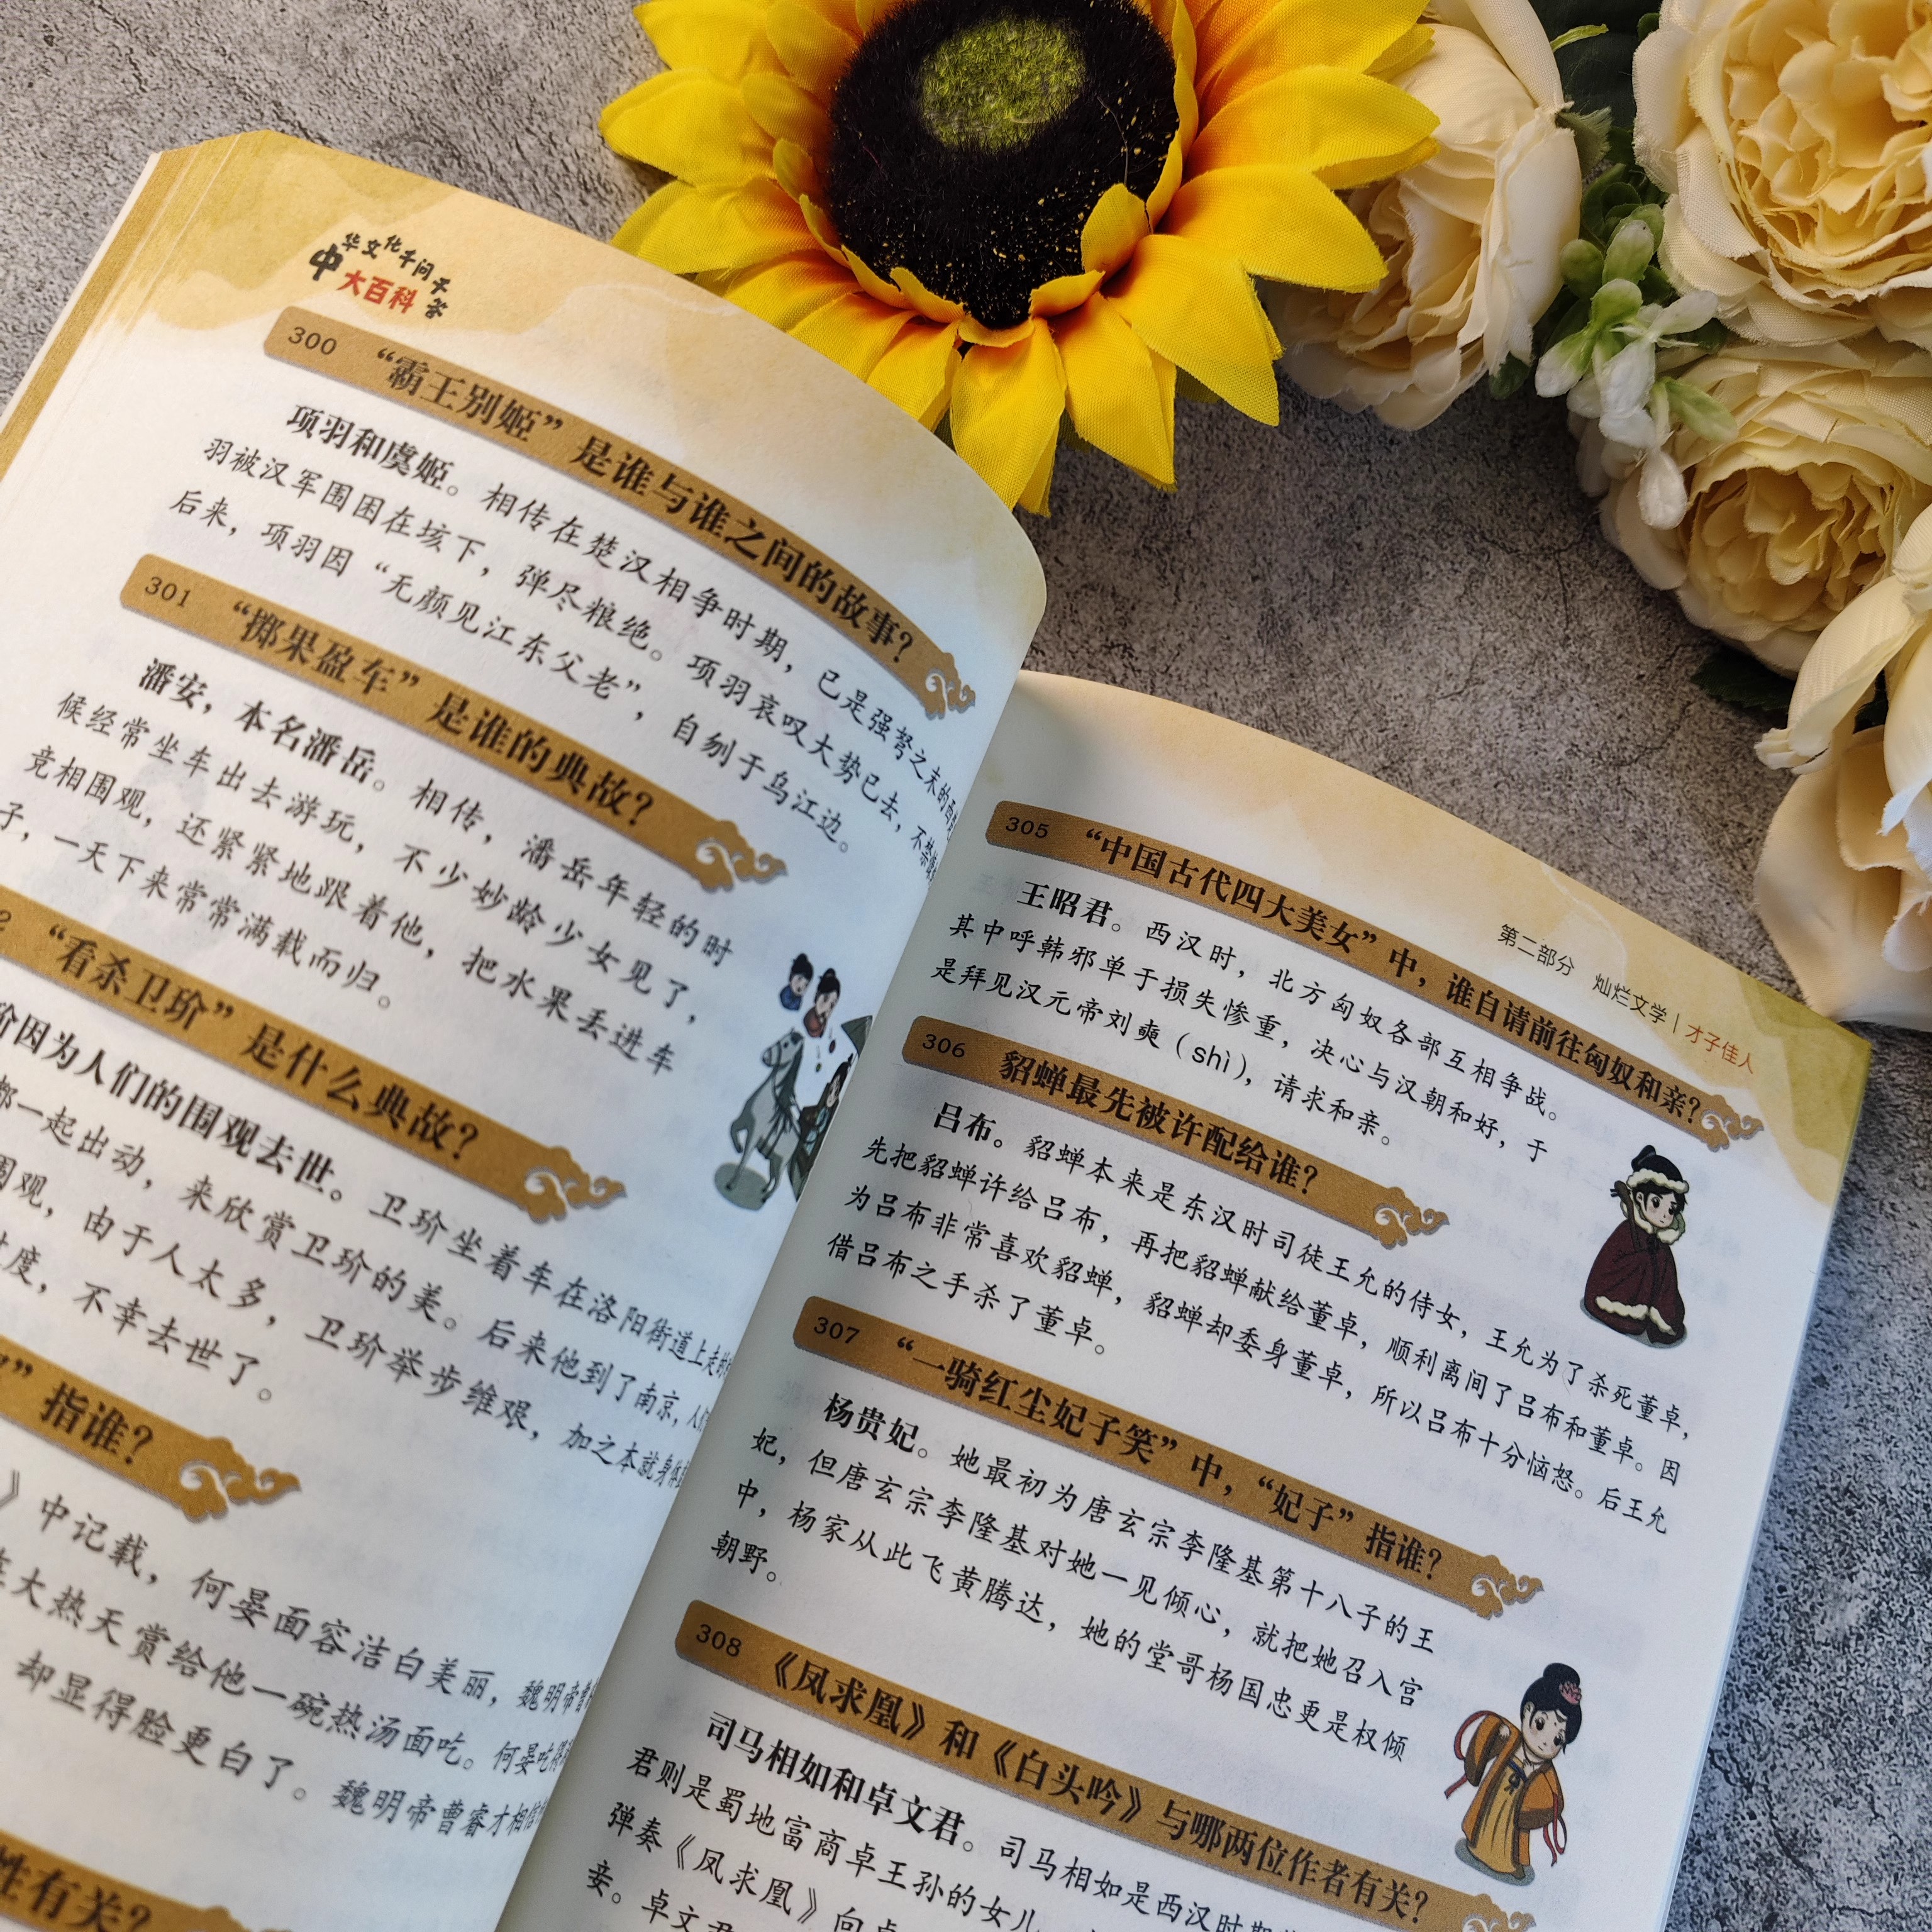 中华文化千问千答
大百科
300 “霸王别姬”是谁与谁之间的故事？
项羽和虞姬。相传在楚汉相争时期，已是强弩之末的西
羽被汉军围困在垓下，弹尽粮绝。项羽哀叹大势已去，不禁
后来，项羽因“无颜见江东父老”，自刎于乌江边。
301 “掷果盈车”是谁的典故？
潘安，本名潘岳。相传，潘岳年轻的时
候经常坐车出去游玩，不少妙龄少女见了，
竞相围观，还紧紧地跟着他，把水果丢进车
子，一天下来常常满载而归。
2 “看杀卫玠”是什么典故？
玠因为人们的围观去世。卫玠坐着车在洛阳街道上走
都一起出动，来欣赏卫玠的美。后来他到了南京，人
围观，由于人太多，卫玠举步维艰，加之本就身体
过度，不幸去世了。
”指谁？
》中记载，何晏面容洁白美丽，魏明帝曹
在大热天赏给他一碗热汤面吃。何晏吃得
却显得脸更白了。魏明帝曹睿才相信
性有关？
第二部分 灿烂文学｜才子佳人
305 “中国古代四大美女”中，谁自请前往匈奴和亲？
王昭君。西汉时，北方匈奴各部互相争战。
其中呼韩邪单于损失惨重，决心与汉朝和好，于
是拜见汉元帝刘奭（shì），请求和亲。
306 貂蝉最先被许配给谁？
吕布。貂蝉本来是东汉时司徒王允的侍女，王允为了杀死董卓，
先把貂蝉许给吕布，再把貂蝉献给董卓，顺利离间了吕布和董卓。因
为吕布非常喜欢貂蝉，貂蝉却委身董卓，所以吕布十分恼怒。后王允
借吕布之手杀了董卓。
307 “一骑红尘妃子笑”中，“妃子”指谁？
杨贵妃。她最初为唐玄宗李隆基第十八子的王
妃，但唐玄宗李隆基对她一见倾心，就把她召入宫
中，杨家从此飞黄腾达，她的堂哥杨国忠更是权倾
朝野。
308 《凤求凰》和《白头吟》与哪两位作者有关？
司马相如和卓文君。司马相如是西汉时期
君则是蜀地富商卓王孙的女儿
弹奏《凤求凰》向卓
妾。卓文君